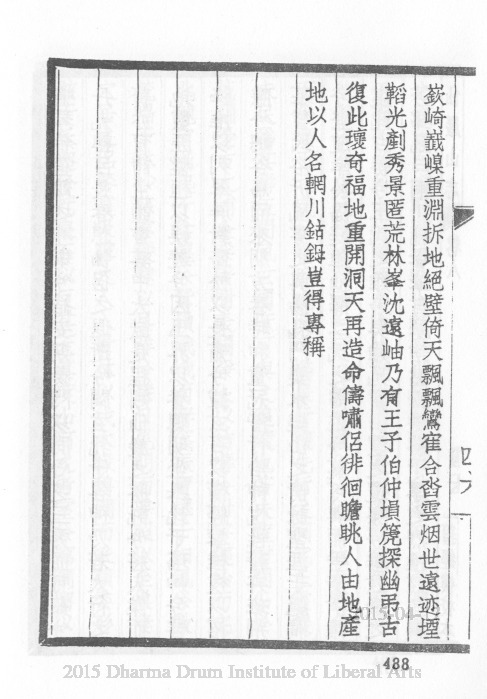 嶔崎嶻嵲重淵拆地絕壁倚天飄飄鸞隺合沓雲烟世遠迹堙
韜光剷秀景匿荒林峯沈遠岫乃有王子伯仲塤箎探幽弔古
復此瓌奇福地重開洞天再造命儔嘯侶徘徊瞻眺人由地產
地以人名輞川鈷鉧豈得專稱
488
2015 Dharma Drum Institute of Liberal Arts